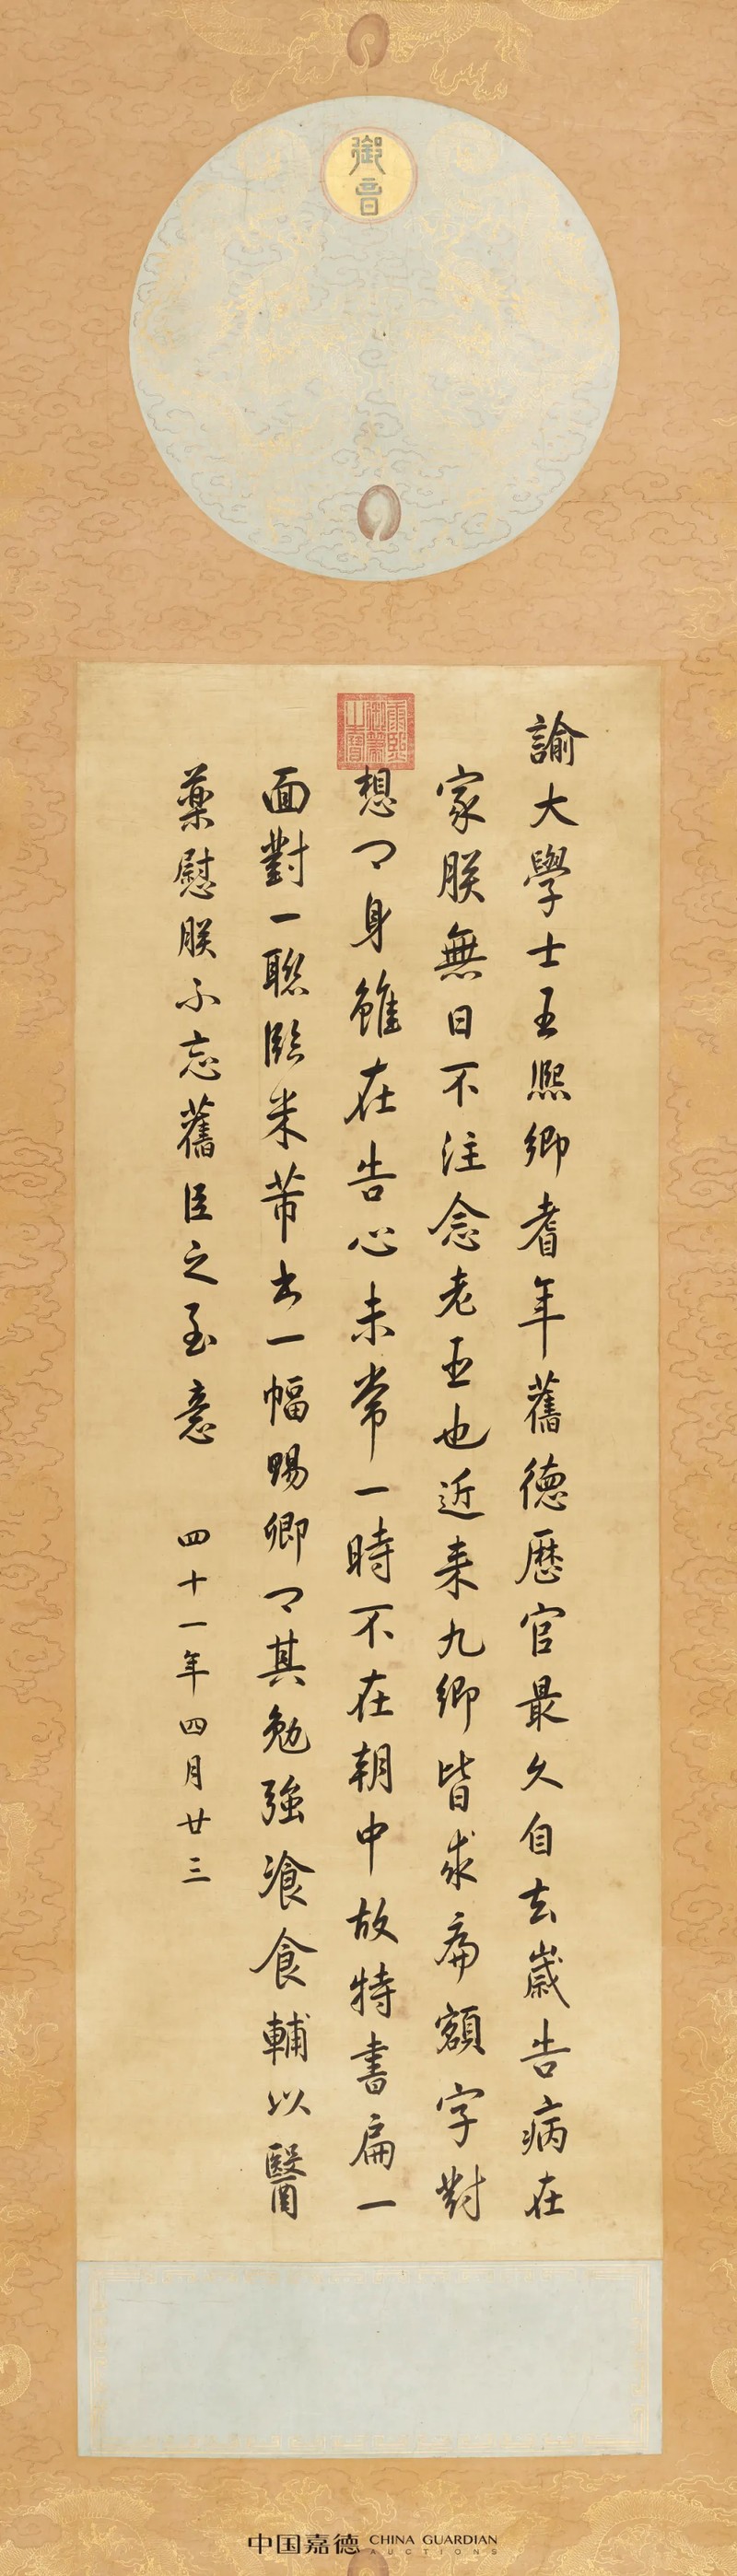 御音
康熙御筆之寶
諭大學士王熙卿耆年舊德歷官最久自去歲告病在
家朕無日不注念老王也近来九卿皆求扁額字對
想々身雖在告心未常一時不在朝中故特書扁一
面對一聯臨米芾書一幅賜卿々其勉強飡食輔以醫
藥慰朕不忘舊臣之至意 四十一年四月廿三
中国嘉德 CHINA GUARDIAN
AUCTIONS